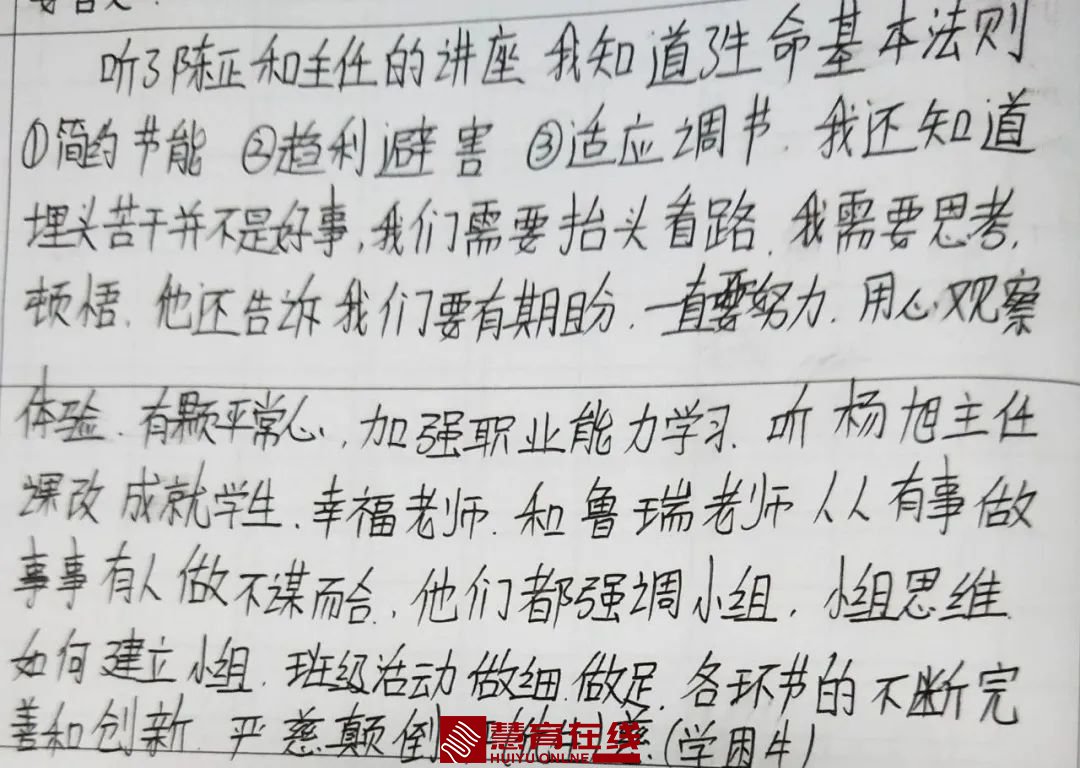 听了陈正和主任的讲座 我知道了生命基本法则
①简约节能 ②趋利避害 ③适应调节. 我还知道
埋头苦干并不是好事,我们需要抬头看路. 我需要思考.
顿悟. 他还告诉我们要有期盼. 一直要努力. 用心观察
体验. 有颗平常心, 加强职业能力学习. 听杨旭主任
课改 成就学生. 幸福老师. 和鲁瑞老师 人人有事做
事事有人做不谋而合. 他们都强调小组. 小组思维.
如何建立小组. 班级活动 做细. 做足. 各环节的不断完
善和创新. 严慈颠倒 慈.(学困生)
慧育在线
HUIYUONLINE